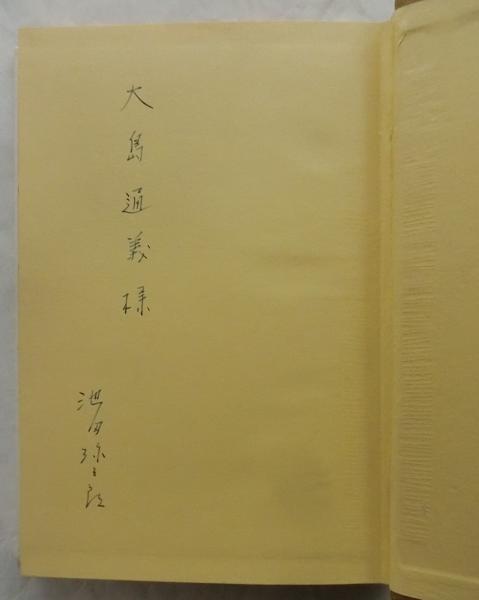 大島通義様
池田弥三郎